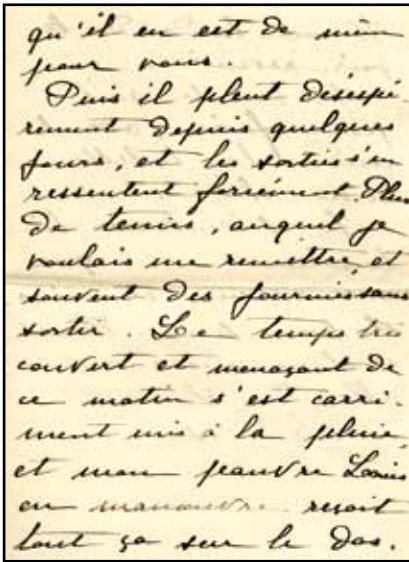 qu'il en est de même
pour vous.
Puis il pleut désespé-
rément depuis quelques
jours, et les sorties s'en
ressentent forcément. Plus
de tennis, auquel je
voulais me remettre, et
souvent des journées sans
sortir. Le temps très
couvert et menaçant de
ce matin s'est carré-
ment mis à la pluie,
et mon pauvre Louis
en manœuvre reçoit
tout ça sur le dos.